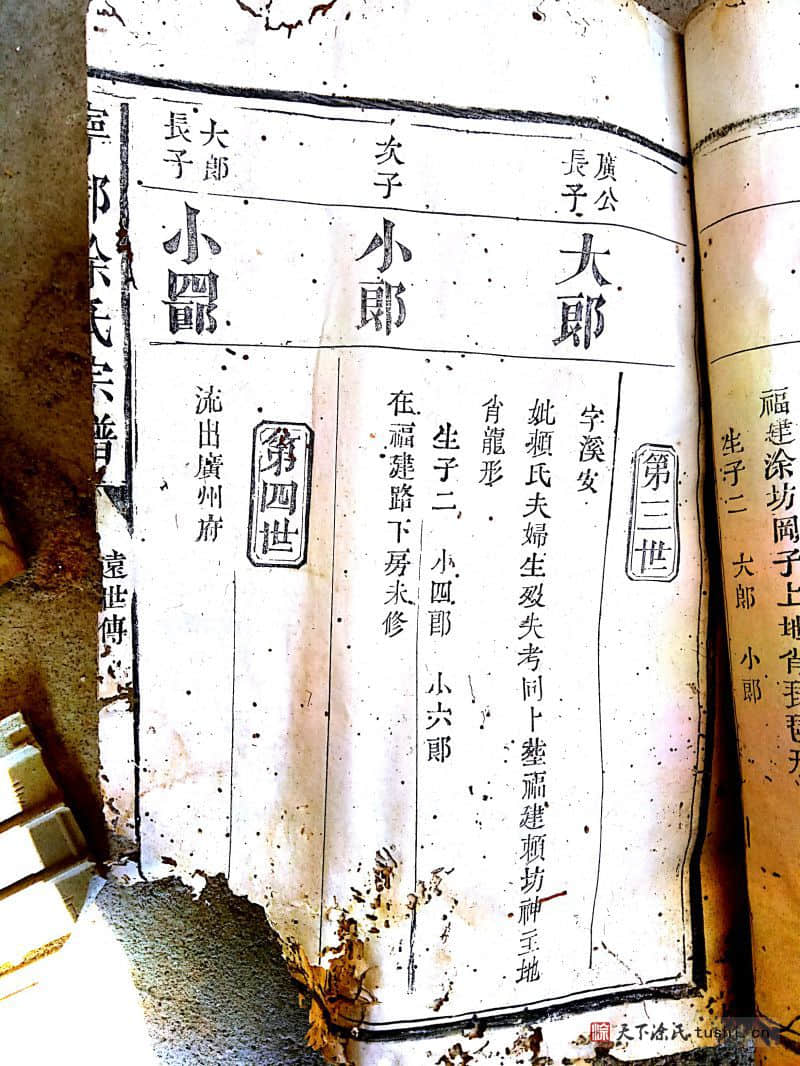 福建涂坊岡子上地肖琵琶形
生子二 大郎 小郎
第三世
廣公
長子
大郎
字溪安
妣賴氏夫婦生殁失考同卜塟福建賴坊神主地
肖龍形
生子二 小四郎 小六郎
次子
小郎
在福建路下房未修
第四世
大郎
長子
小四郎
流出廣州府
寧都涂氏宗譜
遠世傳
天下涂氏 tushi.cn